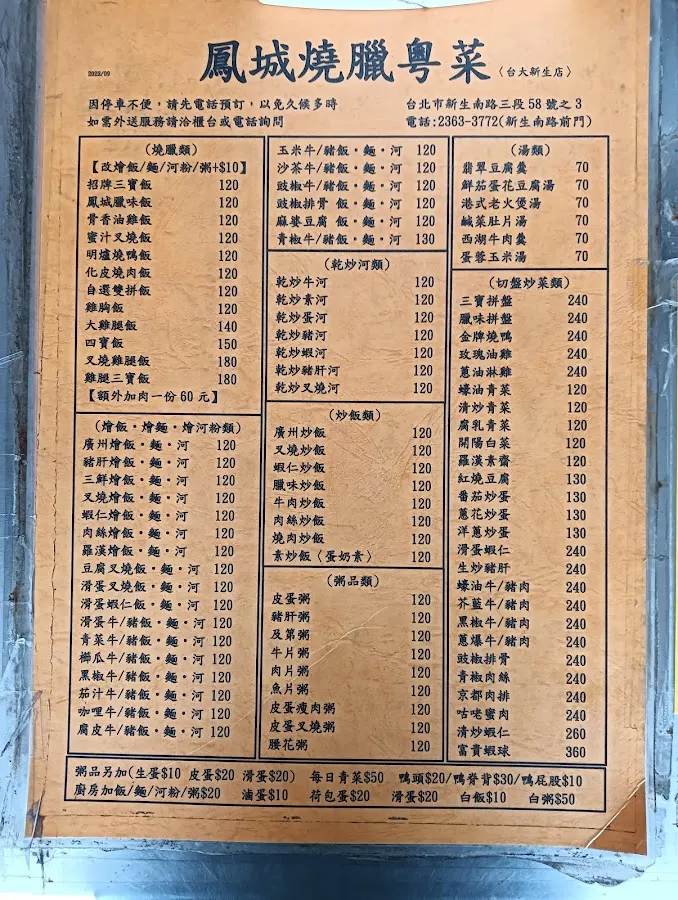 鳳城燒臘粵菜〈台大新生店〉
2023/09
因停車不便，請先電話預訂，以免久候多時
如需外送服務請洽櫃台或電話詢問
台北市新生南路三段58號之3
電話:2363-3772(新生南路前門)
(燒臘類)
【改燴飯/麵/河粉/粥+$10】
招牌三寶飯 120
鳳城臘味飯 120
骨香油雞飯 120
蜜汁叉燒飯 120
明爐燒鴨飯 120
化皮燒肉飯 120
自選雙拼飯 120
雞胸飯 120
大雞腿飯 140
四寶飯 150
叉燒雞腿飯 180
雞腿三寶飯 180
【額外加肉一份60元】
(燴飯・燴麵・燴河粉類)
廣州燴飯・麵・河 120
豬肝燴飯・麵・河 120
三鮮燴飯・麵・河 120
叉燒燴飯・麵・河 120
蝦仁燴飯・麵・河 120
肉絲燴飯・麵・河 120
羅漢燴飯・麵・河 120
豆腐叉燒飯・麵・河 120
滑蛋叉燒飯・麵・河 120
滑蛋蝦仁飯・麵・河 120
滑蛋牛/豬飯・麵・河 120
青菜牛/豬飯・麵・河 120
榔瓜牛/豬飯・麵・河 120
黑椒牛/豬飯・麵・河 120
茄汁牛/豬飯・麵・河 120
咖哩牛/豬飯・麵・河 120
腐皮牛/豬飯・麵・河 120
玉米牛/豬飯・麵・河 120
沙茶牛/豬飯・麵・河 120
豉椒牛/豬飯・麵・河 120
豉椒排骨 飯・麵・河 120
麻婆豆腐 飯・麵・河 120
青椒牛/豬飯・麵・河 130
(乾炒河類)
乾炒牛河 120
乾炒素河 120
乾炒蛋河 120
乾炒豬河 120
乾炒蝦河 120
乾炒豬肝河 120
乾炒叉燒河 120
(炒飯類)
廣州炒飯 120
叉燒炒飯 120
蝦仁炒飯 120
臘味炒飯 120
牛肉炒飯 120
肉絲炒飯 120
燒肉炒飯 120
素炒飯〈蛋奶素〉 120
(粥品類)
皮蛋粥 120
豬肝粥 120
及第粥 120
牛片粥 120
肉片粥 120
魚片粥 120
皮蛋瘦肉粥 120
皮蛋叉燒粥 120
腰花粥 120
(湯類)
翡翠豆腐羹 70
鮮茄蛋花豆腐湯 70
港式老火煲湯 70
鹹菜肚片湯 70
西湖牛肉羹 70
蛋蓉玉米湯 70
(切盤炒菜類)
三寶拼盤 240
臘味拼盤 240
金牌燒鴨 240
玫瑰油雞 240
蔥油淋雞 240
蠔油青菜 120
清炒青菜 120
腐乳青菜 120
開陽白菜 120
羅漢素齋 120
紅燒豆腐 130
番茄炒蛋 130
蔥花炒蛋 130
洋蔥炒蛋 130
滑蛋蝦仁 240
生炒豬肝 240
蠔油牛/豬肉 240
芥藍牛/豬肉 240
黑椒牛/豬肉 240
蔥爆牛/豬肉 240
豉椒排骨 240
青椒肉絲 240
京都肉排 240
咕咾蜜肉 240
清炒蝦仁 260
富貴蝦球 360
粥品另加(生蛋$10 皮蛋$20 滑蛋$20) 每日青菜$50 鴨頭$20/鴨脊背$30/鴨屁股$10
廚房加飯/麵/河粉/粥$20 滷蛋$10 荷包蛋$20 滑蛋$20 白飯$10 白粥$50